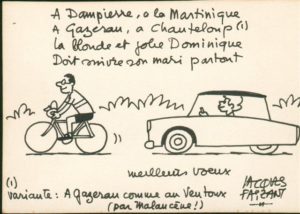 A Dampierre, à la Martinique
A Gazeran, à Chanteloup (1)
La blonde et jolie Dominique
Doit suivre son mari partout
meilleurs vœux
JACQUES
FAIZANT
(1)
variante : A Gazeran comme au Ventoux
(par Malaucène !)